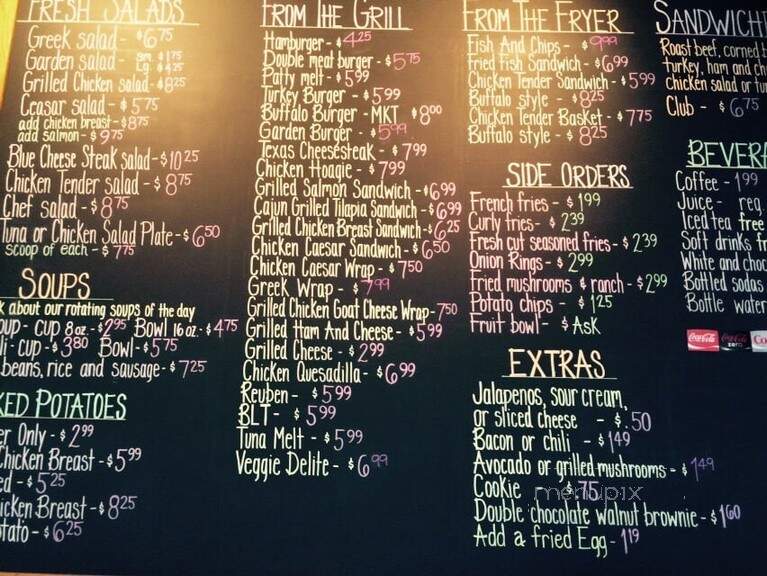 FRESH SALADS
Greek salad - $6.75
Garden salad - sm. $1.75
Lg. $4.25
Grilled Chicken salad - $8.25
Ceasar salad - $5.75
add chicken breast - $8.75
add salmon - $9.75
Blue Cheese Steak salad - $10.25
Chicken Tender salad - $8.75
Chef salad - $8.75
Tuna or Chicken Salad Plate - $6.50
scoop of each - $7.75
SOUPS
about our rotating soups of the day
cup 8 oz. - $2.95 Bowl 16 oz. - $4.75
cup - $3.80 Bowl - $5.75
beans, rice and sausage - $7.25
POTATOES
Only - $2.99
Chicken Breast - $5.99
- $5.25
Breast - $8.25
- $6.25
FROM THE GRILL
Hamburger - $4.25
Double meat burger - $5.75
Patty melt - $5.99
Turkey Burger - $5.99
Buffalo Burger - MKT $8.00
Garden Burger - $5.99
Texas Cheesesteak - $7.99
Chicken Hoagie - $7.99
Grilled Salmon Sandwich - $6.99
Cajun Grilled Tilapia Sandwich - $6.99
Grilled Chicken Breast Sandwich - $6.25
Chicken Caesar Sandwich - $6.50
Chicken Caesar Wrap - $7.50
Greek Wrap - $7.99
Grilled Chicken Goat Cheese Wrap - 7.50
Grilled Ham And Cheese - $5.99
Grilled Cheese - $2.99
Chicken Quesadilla - $6.99
Reuben - $5.99
BLT - $5.99
Tuna Melt - $5.99
Veggie Delite - $6.99
FROM THE FRYER
Fish And Chips - $9.99
Fried fish Sandwich - $6.99
Chicken Tender Sandwich - $5.99
Buffalo style - $8.25
Chicken Tender Basket - $7.75
Buffalo style - $8.25
SIDE ORDERS
French fries - $1.99
Curly fries - $2.39
Fresh cut seasoned fries - $2.39
Onion Rings - $2.99
Fried mushrooms & ranch - $2.99
Potato chips - $1.25
Fruit bowl - $Ask
EXTRAS
Jalapenos, sour cream,
or sliced cheese - $.50
Bacon or chili - $1.49
Avocado or grilled mushrooms - $1.49
Cookie $.75
Double chocolate walnut brownie - $1.60
Add a fried Egg - 1.19
Roast beef, corned
turkey, ham and
Chicken salad or
Club - $6.75
Coffee - 1.99
Juice - reg.
Iced tea free
Soft drinks
White and
Bottled sodas
Bottle water
Coca-Cola
Coca-Cola zero
menupix